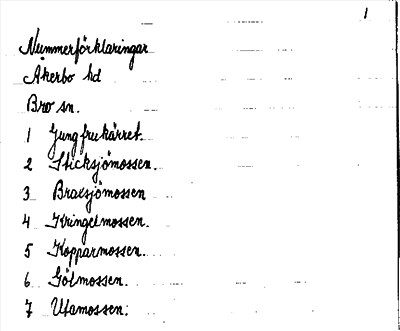 1
Nummerförklaringar
Åkerbo hd
Bro sn.
1 Jungfrukärret.
2 Sticksjömossen.
3 Braxsjömossen
4 Kringelmossen.
5 Kopparmossen.
6 Gölmossen.
7 Utamossen.